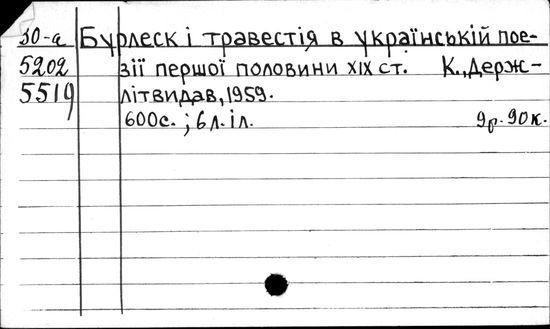 30-а Бурлеск і травестія в українській пое-
5202 зії першої половини XIX ст. К., Держ-
5519 літвидав, 1959.
600с.; 6л.іл. 9р. 90к.